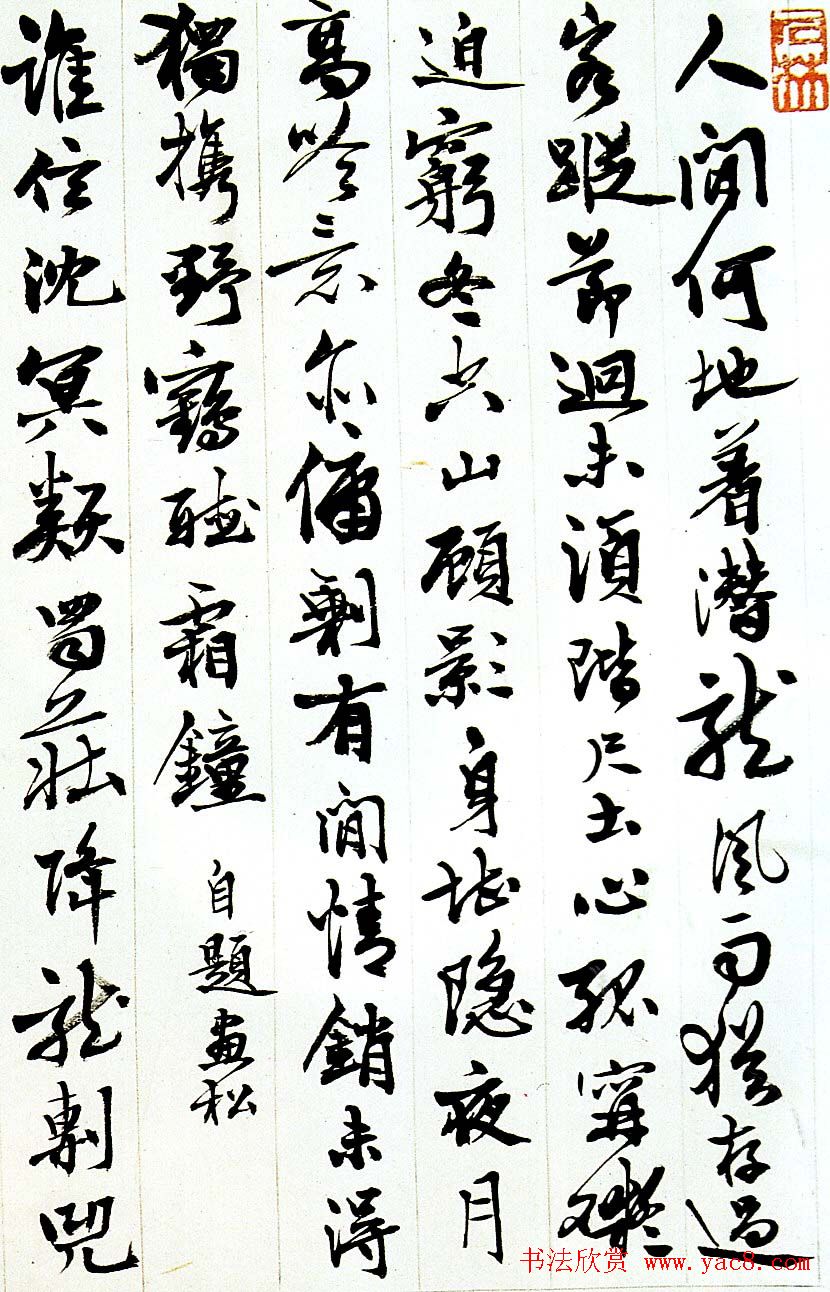 人間何地着潛龍風雨猶存過
客蹤節迥未須階尺土心孤甯礙
迫窮冬空山顧影身堪隱夜月
高吟意亦慵剩有閒情銷未得
獨携野鶴聽霜鐘 自題畫松
誰信沈冥類蜀莊降龍剸兕
书法欣赏 www.yac8.com